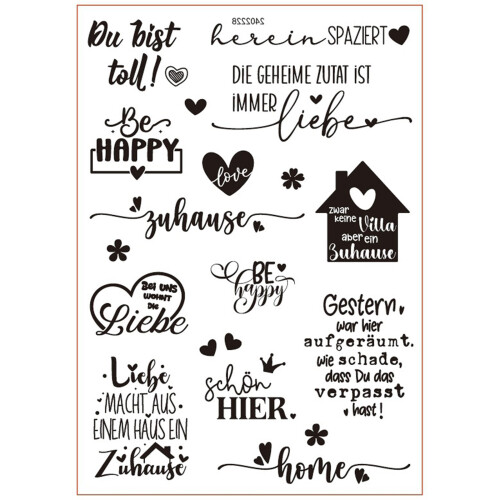 Du bist
toll!
2402228
herein SPAZIERT
DIE GEHEIME ZUTAT IST
IMMER
liebe
Be
HAPPY
love
zuhause
zwar
keine Villa
aber ein
Zuhause
BEI UNS
WOHNT
DIE
Liebe
BE
happy
Gestern
war hier
aufgeräumt.
wie schade,
dass Du das
verpasst
hast!
Liebe
MACHT AUS
EINEM HAUS EIN
Zuhause
schön
HIER.
home